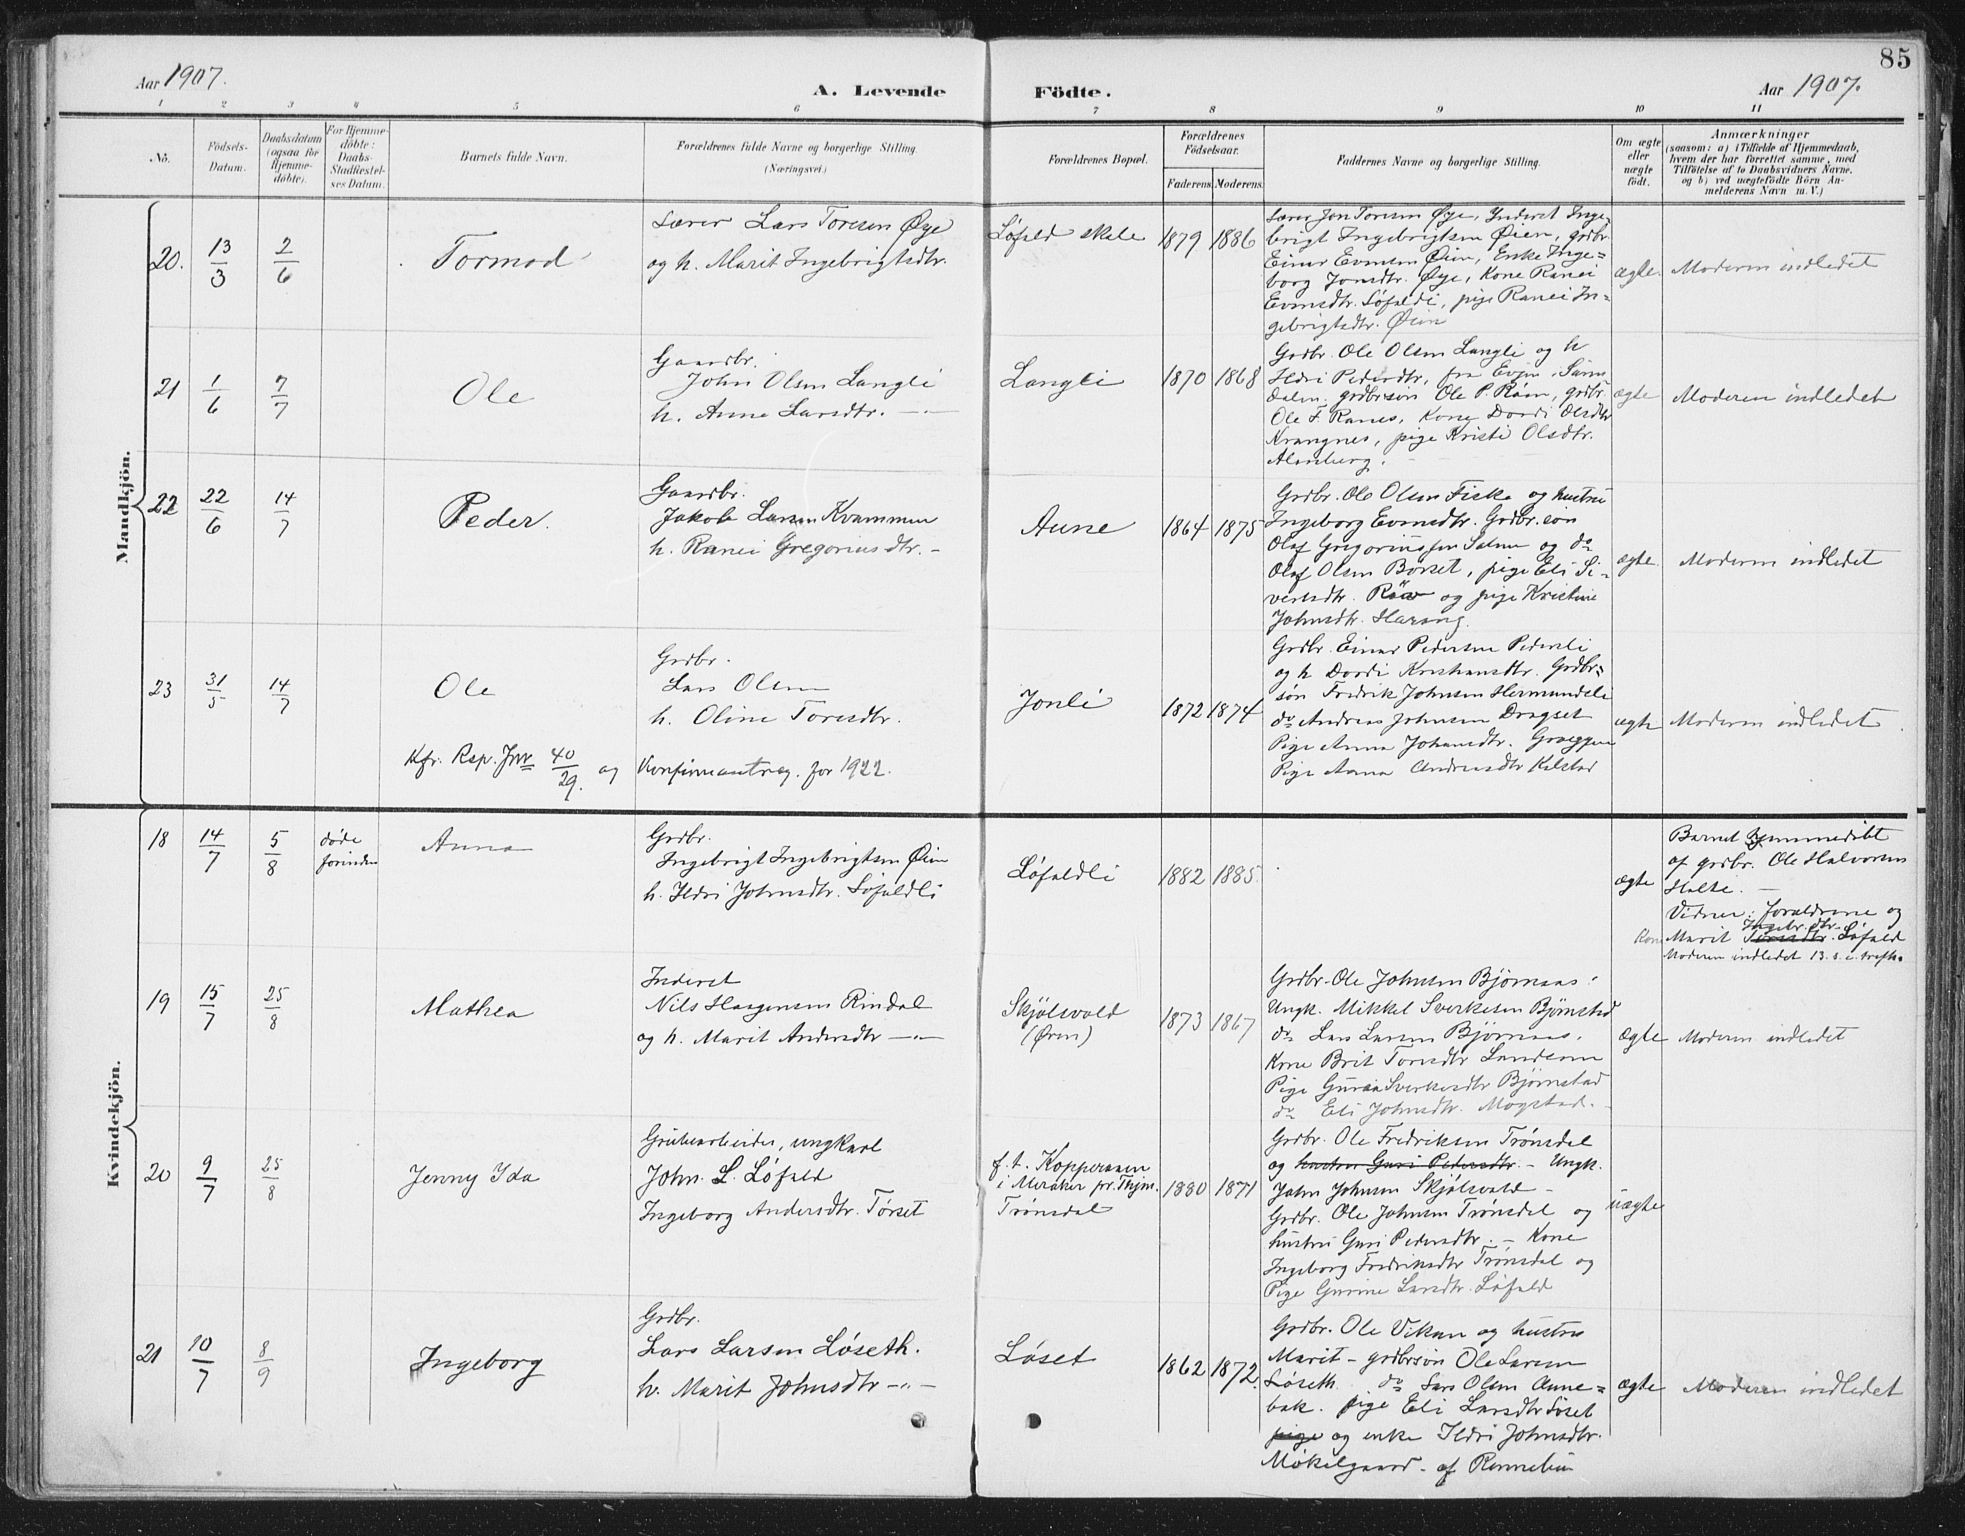 Aar 1907.
A. Levende Födte.
Aar 1907.
85
1 2 3 4 5 6 7 8 9 10 11
No.
Födsels-
Datum.
Daabsdatum
(ogsaa for
Hjemme-
döbte).
For Hjemme-
döbte:
Daabs-
Stadfæstel-
ses Datum.
Barnets fulde Navn.
Forældrenes fulde Navne og borgerlige Stilling.
(Næringsvei.)
Forældrenes Bopæl.
Forældrenes
Födselsaar.
Faderens.
Moderens.
Faddernes Navne og borgerlige Stilling.
Om ægte
eller
uægte
födt.
Anmærkninger
(saasom: a) i Tilfælde af Hjemmedaab,
hvem der har forrettet samme, med
Tilföielse af to Daabsvidners Navne,
og b) ved uægtefödte Börn An-
melderens Navn m. V.)
Mandkjön.
20.
13/3
2/6
Tormod
Lærer Lars Toresen Øye
og h. Marit Ingebrigtsdtr.
Løfald skole
1879
1886
Lærer Jon Toresen Øye, Inderst Inge-
brigt Ingebrigtsen Øien, grdbr.
Einar Evensen Øien, Enke Inge-
borg Jonsdtr. Øye, Kone Ranei
Evensdtr. Løfaldli, pige Ranei In-
gebrigtsdtr. Øien
ægte.
Moderen indledet
21
1/6
7/7
Ole
Gaardbr.
John Olsen Langli
h. Anne Larsdtr. -"-
Langli
1870
1868
Grdbr. Ole Olsen Langli og h
Ildri Pedersdtr, fra Evjen, Surn-
dalen, grdbrsøn Ole P. Røen, grdbr.
Ole F. Ranes, Kone Dordi Olsdtr
Krangnes, pige Kristi Olsdtr.
Almberg.
ægte
Moderen indledet
22
22/6
14/7
Peder.
Gaardbr.
Jakob Larsen Kvammen
h. Ranei Gregoriusdtr. -
Aune
1864
1875
Grdbr. Ole Olsen Fiske og hustru
Ingeborg Evensdtr. Grdbr.søn
Olaf Gregoriussen Salmo og do
Olaf Olsen Børset, pige Eli Si-
vertsdtr. Röv og pige Kristine
Johnsdtr. Harang.
ægte.
Moderen indledet
23
31/5
14/7
Ole
Grdbr.
Lars Olsen
h. Oline Toresdtr.
Jonli
1872
1874
Grdbr. Einar Pedersen Pedersli
og h Dordi Kristiansdtr. Grdbr-
søn Fredrik Johnsen Hermundsli
do Andreas Johnsen Dragset
Pige Anna Johansdtr.
Pige Anna Andreasdtr Kelstad
ægte
Moderen indledet
Kfr. Rsp. Jnr 40/29. og Konfirmantreg. for 1922.
Kvindekjön.
18
14/7
5/8
døde
forinden
Anna
Grdbr.
Ingebrigt Ingebrigtsen Øien
h. Ildri Johnsdtr. Løfaldli
Løfaldli
1882
1885.
ægte
Barnet hjemmedøbt
af grdbr. Ole Halvorsen
Holte. -
Vidner: forældrene og
Ingebr.dtr.
Kone Marit Toresdtr. Løfald
Moderen indledet 13. s. e. trefh.
19
15/7
25/8
Mathea
Inderst
Nils Haagensen Rindal
og h. Marit Andersdtr -"-
Skjølsvold
(Øren)
1873
1867
Grdbr. Ole Johnsen Bjørnaas.
Ungk. Mikkel Sverkesen Bjørnstad
do Lars Larsen Bjørnaas.
Kone Brit Toresdtr Landsem
Pige Guru Sverkesdtr Bjørnstad
do Eli Johnsdtr. Mogstad.
ægte
Moderen indledet
20
9/7
25/8
Jenny Ida
Grubearbeider, ungkarl
John. L. Løfald
Ingeborg Andersdtr. Tørset
f. t. Kopperaaen
i Meraker pr. Thjm.
Trønsdal
1880
1871
Grdbr. Ole Fredriksen Trønsdal
og hustru Guri Pedersdtr. - Ungk.
John Johnsen Skjølsvold -
Grdbr. Ole Johnsen Trønsdal og
hustru Guri Pedersdtr. - Kone
Ingeborg Fredriksdtr Trønsdal og
Pige Gurine Larsdtr. Løfald
uægte
21
10/7
8/9
Ingeborg
Grdbr.
Lars Larsen Løseth.
h. Marit Johnsdtr -"-
Løset
1862
1872.
Grdbr. Ole Vikan og hustru
Marit - grdbrsøn Ole Larsen
Løseth do Lars Olsen Aune-
bak. pige Eli Larsdtr Løset
pige og enke Ildri Johnsdtr.
Møkelgaard - af Rennebu
ægte
Moderen indledet